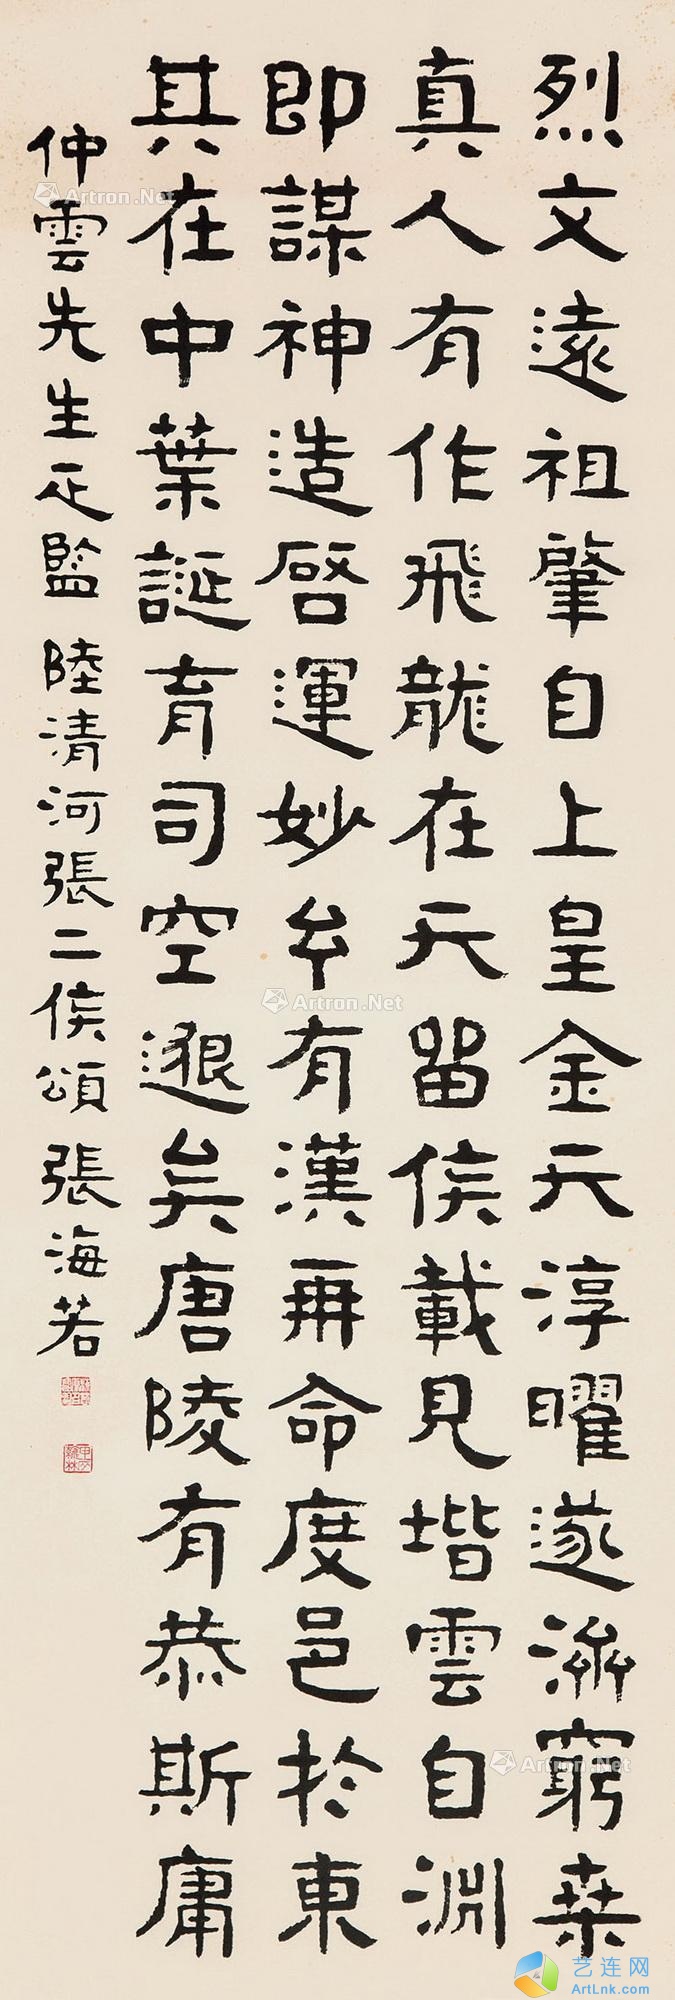 烈文遠祖肇自上皇金天淳曜遂濟窮桒
真人有作飛龍在天留侯載見堦雲自淵
即謀神造啓運妙年有漢再命度邑於東
其在中葉誕育司空邈矣唐陵有恭斯庸
仲雲先生疋監 陸清河張二侯頌 張海若
Artron.Net
Artron.Net
Artron.Net
Artron.Net
艺连网
ArtLnk.com